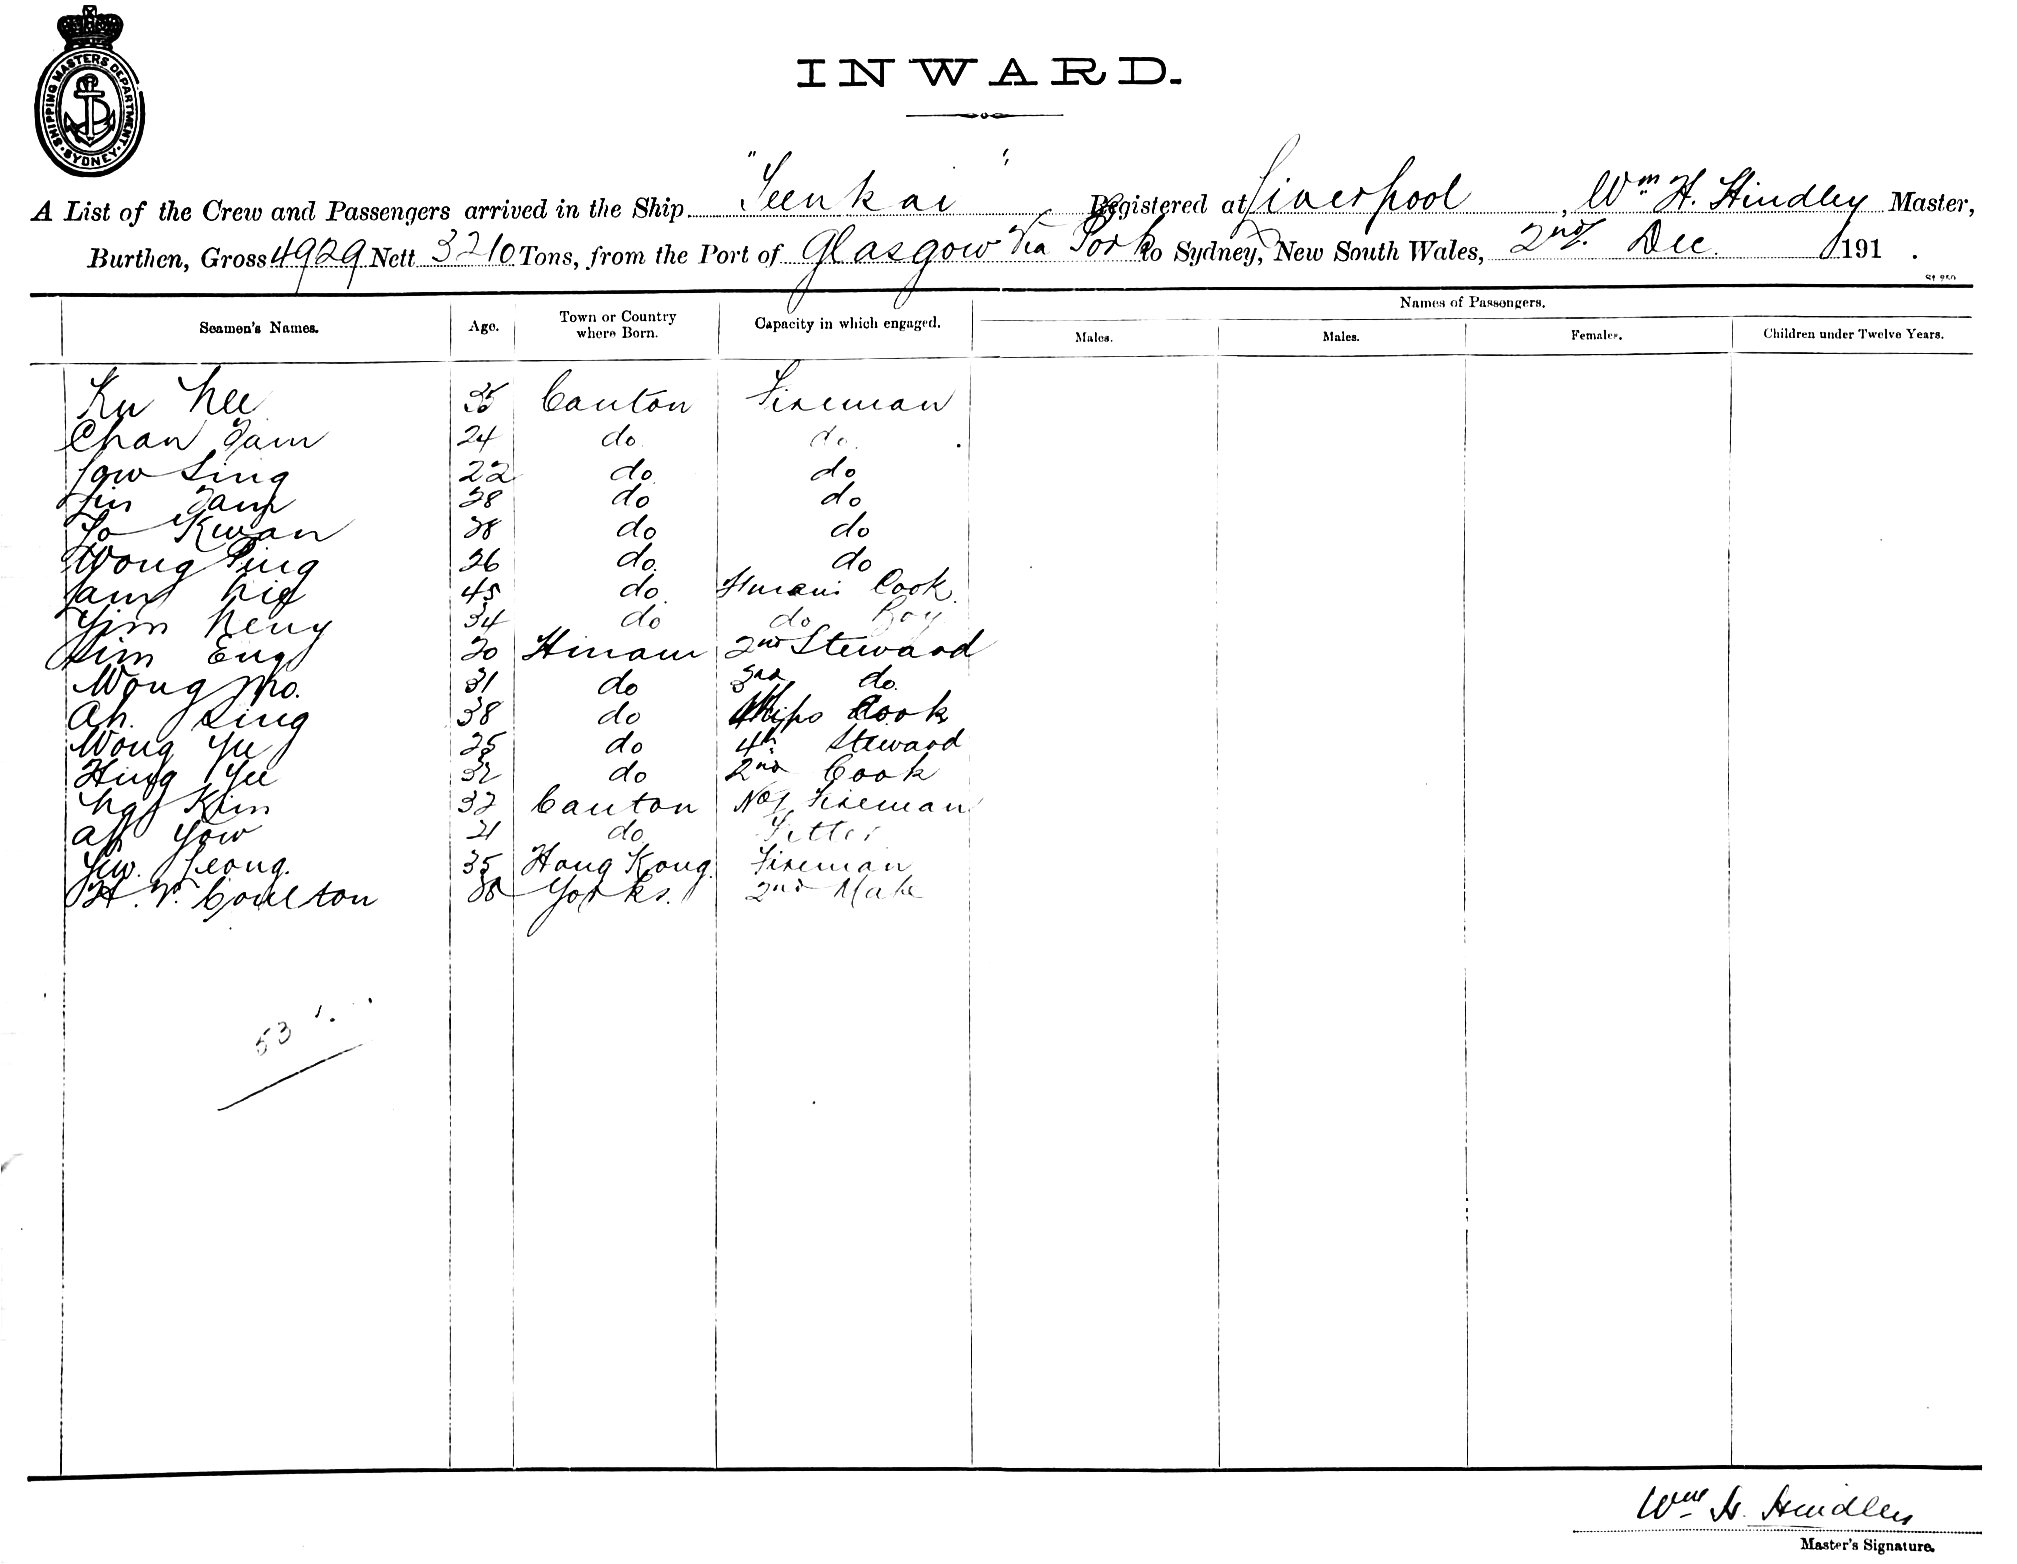 SHIPPING MASTERS DEPARTMENT. SYDNEY
INWARD.
A List of the Crew and Passengers arrived in the Ship "Teenkai" Registered at Liverpool, Wm H. Hindley Master,
Burthen, Gross 4929 Nett 3210 Tons, from the Port of Glasgow via to Sydney, New South Wales, 2nd Dec 191 .
Names of Passengers.
Seamen's Names. Age. Town or Country where Born. Capacity in which engaged. Males. Males. Females. Children under Twelve Years.
Ku Nee 35 Canton Fireman
Chan Tam 24 do do
Low Sing 22 do do
Lin Tam 28 do do
Lo Kwan 28 do do
Wong Ping 26 do do
Lam 45 do Cook
Yim Keny 34 do do Boy
Lim Eng 20 Hinam 2nd Steward
Wong Mo. 31 do 3rd do
Ah Ling 38 do Ships Cook
Wong Yu 25 do 4th Steward
Hing Yee 32 do 2nd Cook
Ng Kim 32 Canton No 1 Fireman
Ah Yow 21 do Fitter
Yew Leong. 35 Hong Kong. Fireman
H. Coulton Yorks. 2nd Mate
53
Wm H. Hindley
Master's Signature.